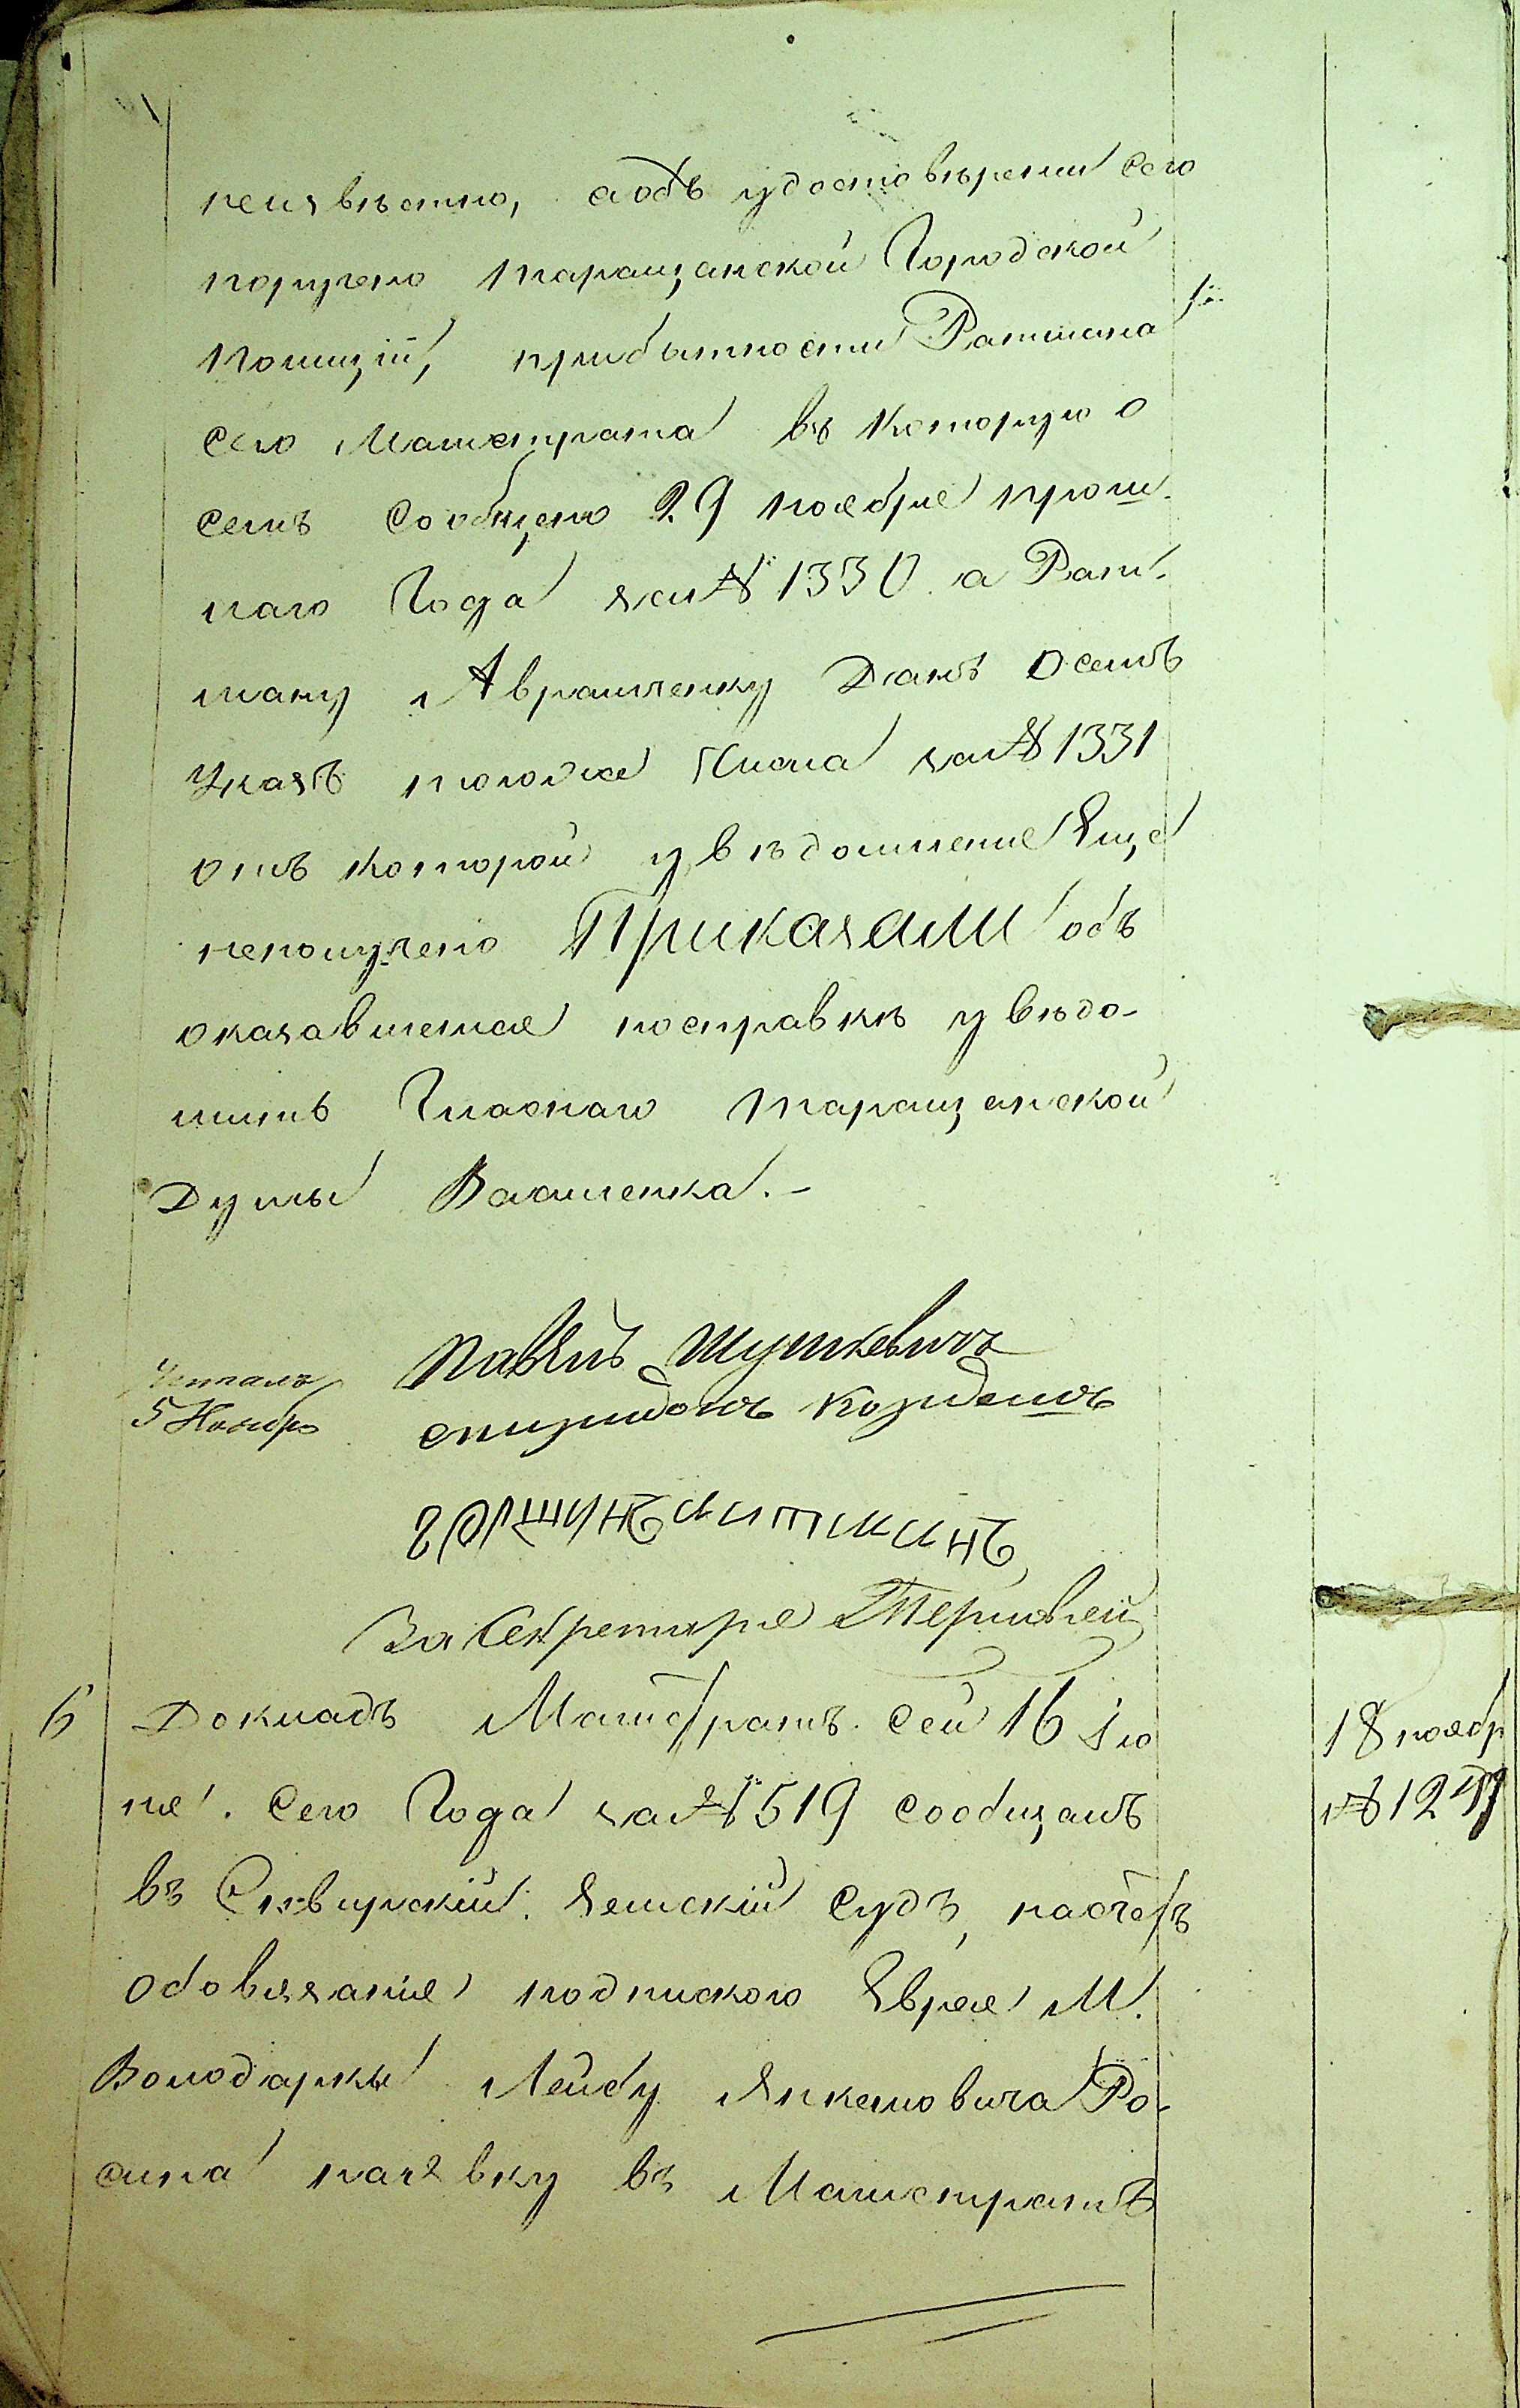 неизвѣстно, а объ удостовѣреніи сего
поручено Таращанской Городской
Полиціи, прибытности Ратмана
сего Магистрата въ которую о
семъ сообщено 29 ноября прош-
лаго Года за № 1330. а Рат-
ману Авраменку Данъ осемъ
Указъ тогоже Числа за № 1331
отъ которой увѣдомленія Еще
неполучено Приказали объ
оказавшемся посправкѣ увѣдо-
мить Гласнаго Таращанской
Думы
Павелъ Шушкевичъ
Читалъ
5 Ноября
За Секретаря
6 Докладъ Магистратъ сей 16 Ію
ня. сего Года за № 519 сообщалъ
18 ноябр
въ Сквирскій. Земскій судъ, насчетъ
обовязанія подпискою Еврея М.
Володарки Лейбу Янкелевича Ро-
сина наявку въ Магистратъ